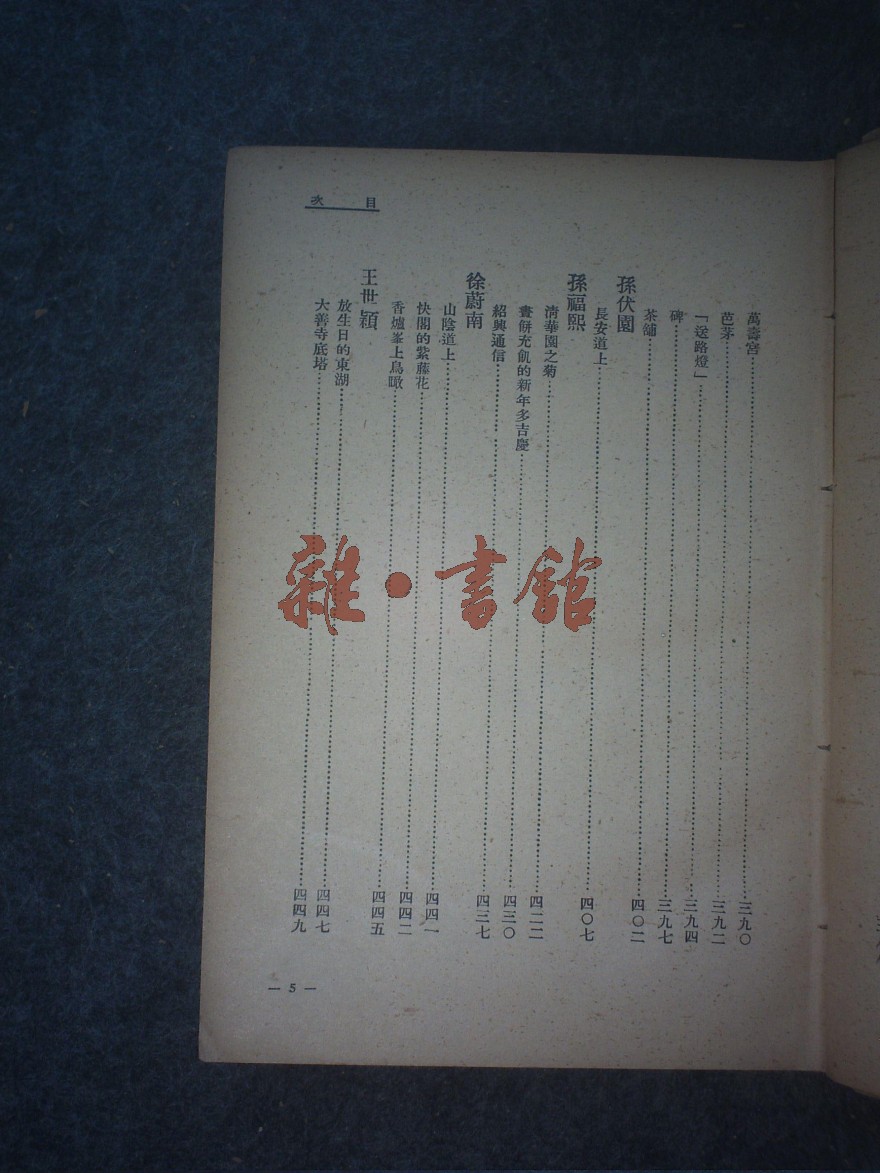 目次
萬壽宮 三九〇
芭茅 三九二
「送路燈」 三九四
碑 三九七
茶舖 四〇二
孫伏園
長安道上 四〇七
孫福熙
清華園之菊 四二二
畫餅充飢的新年多吉慶 四三〇
紹興通信 四三七
徐蔚南
山陰道上 四四一
快閣的紫藤花 四四二
香爐峯上鳥瞰 四四五
王世穎
放生日的東湖 四四七
大善寺底塔 四四九
— 5 —
雜·書館